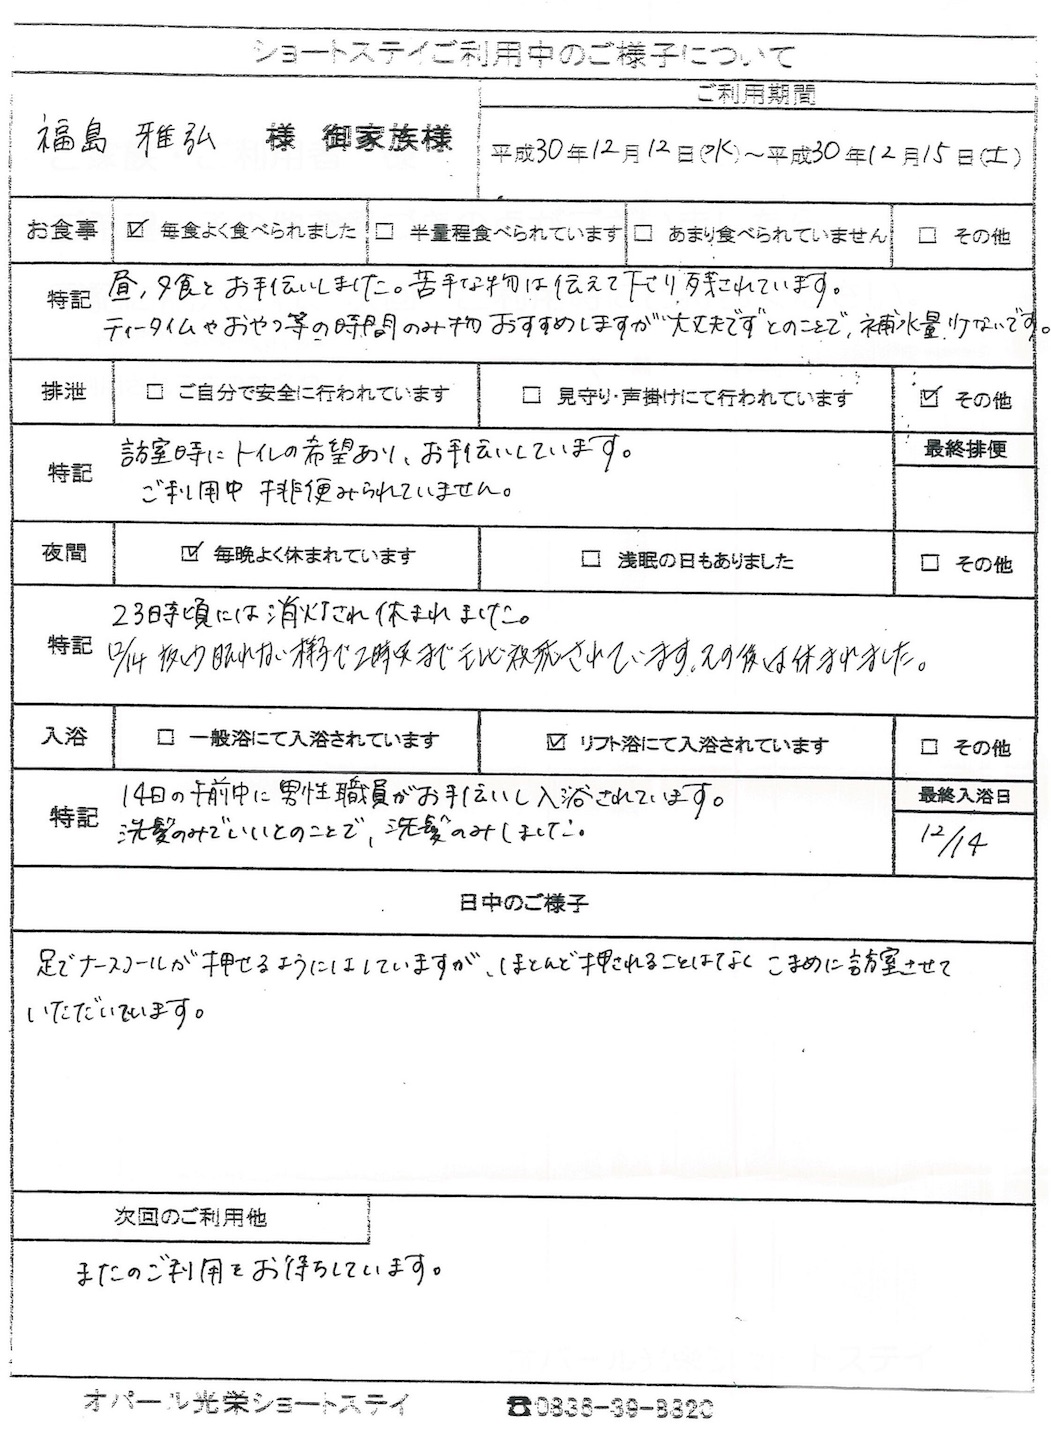 ショートステイご利用中のご様子について
ご利用期間
福島 雅弘 様 御家族様
平成30年12月12日(水)～平成30年12月15日(土)
お食事 ☑ 毎食よく食べられました ☐ 半量程食べられています ☐ あまり食べられていません ☐ その他
特記
昼、夕食とお手伝いしました。苦手な物は伝えて下さり残されています。
ティータイムやおやつ等の時間のみ物おすすめしますが"大丈夫です"とのことで、補水量少ないです。
排泄 ☐ ご自分で安全に行われています ☐ 見守り・声掛けにて行われています ☑ その他
特記
訪室時にトイレの希望あり、お手伝いしています。
ご利用中 排便みられていません。
最終排便
夜間 ☑ 毎晩よく休まれています ☐ 浅眠の日もありました ☐ その他
特記
23時頃には消灯され休まれました。
12/14 夜中眠れない様子で2時頃までテレビ視聴されています。その後は休まれました。
入浴 ☐ 一般浴にて入浴されています ☑ リフト浴にて入浴されています ☐ その他
特記
14日の午前中に男性職員がお手伝いし入浴されています。
洗髪のみでいいとのことで、洗髪のみしました。
最終入浴日
12/14
日中のご様子
足でナースコールが押せるようにはしていますが、ほとんど押されることはなく こまめに訪室させて
いただいています。
次回のご利用他
またのご利用をお待ちしています。
オパール光栄ショートステイ ☎0836-39-8320